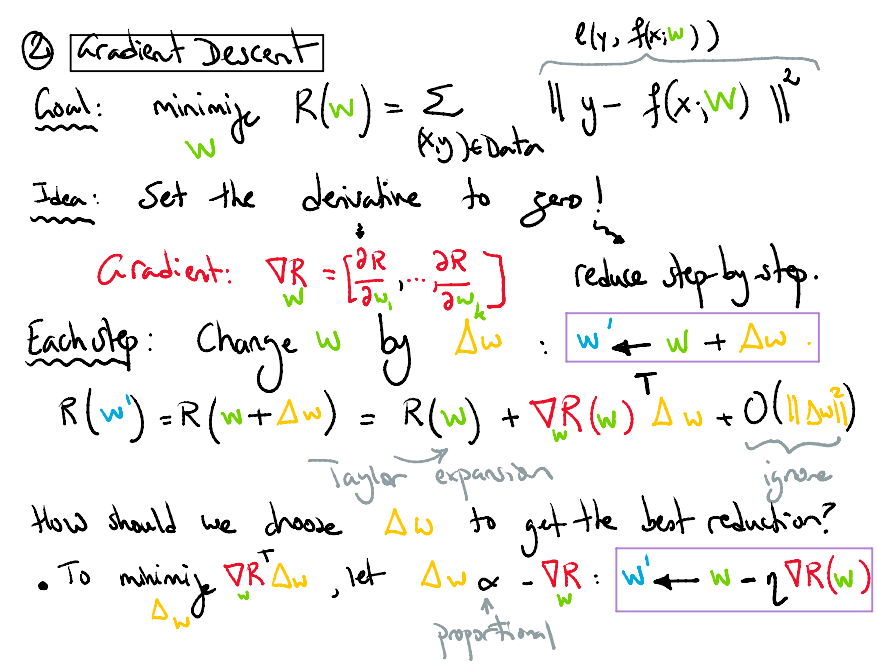 ② Gradient Descent
ℓ(y, f(x;w))
Goal: minimize R(w) = Σ ‖ y - f(x;w) ‖²
w (x,y)∈Data
Idea: Set the derivative to zero!
Gradient: ∇R = [∂R/∂w₁, ... ∂R/∂wₖ] reduce step-by-step.
w
Each step: Change w by Δw : w' ← w + Δw .
R(w') = R(w + Δw) = R(w) + ∇R(w)ᵀ Δw + O(‖Δw‖²)
w
Taylor expansion ignore
How should we choose Δw to get the best reduction?
• To minimize ∇Rᵀ Δw , let Δw ∝ - ∇R : w' ← w - η∇R(w)
Δw w w
proportional